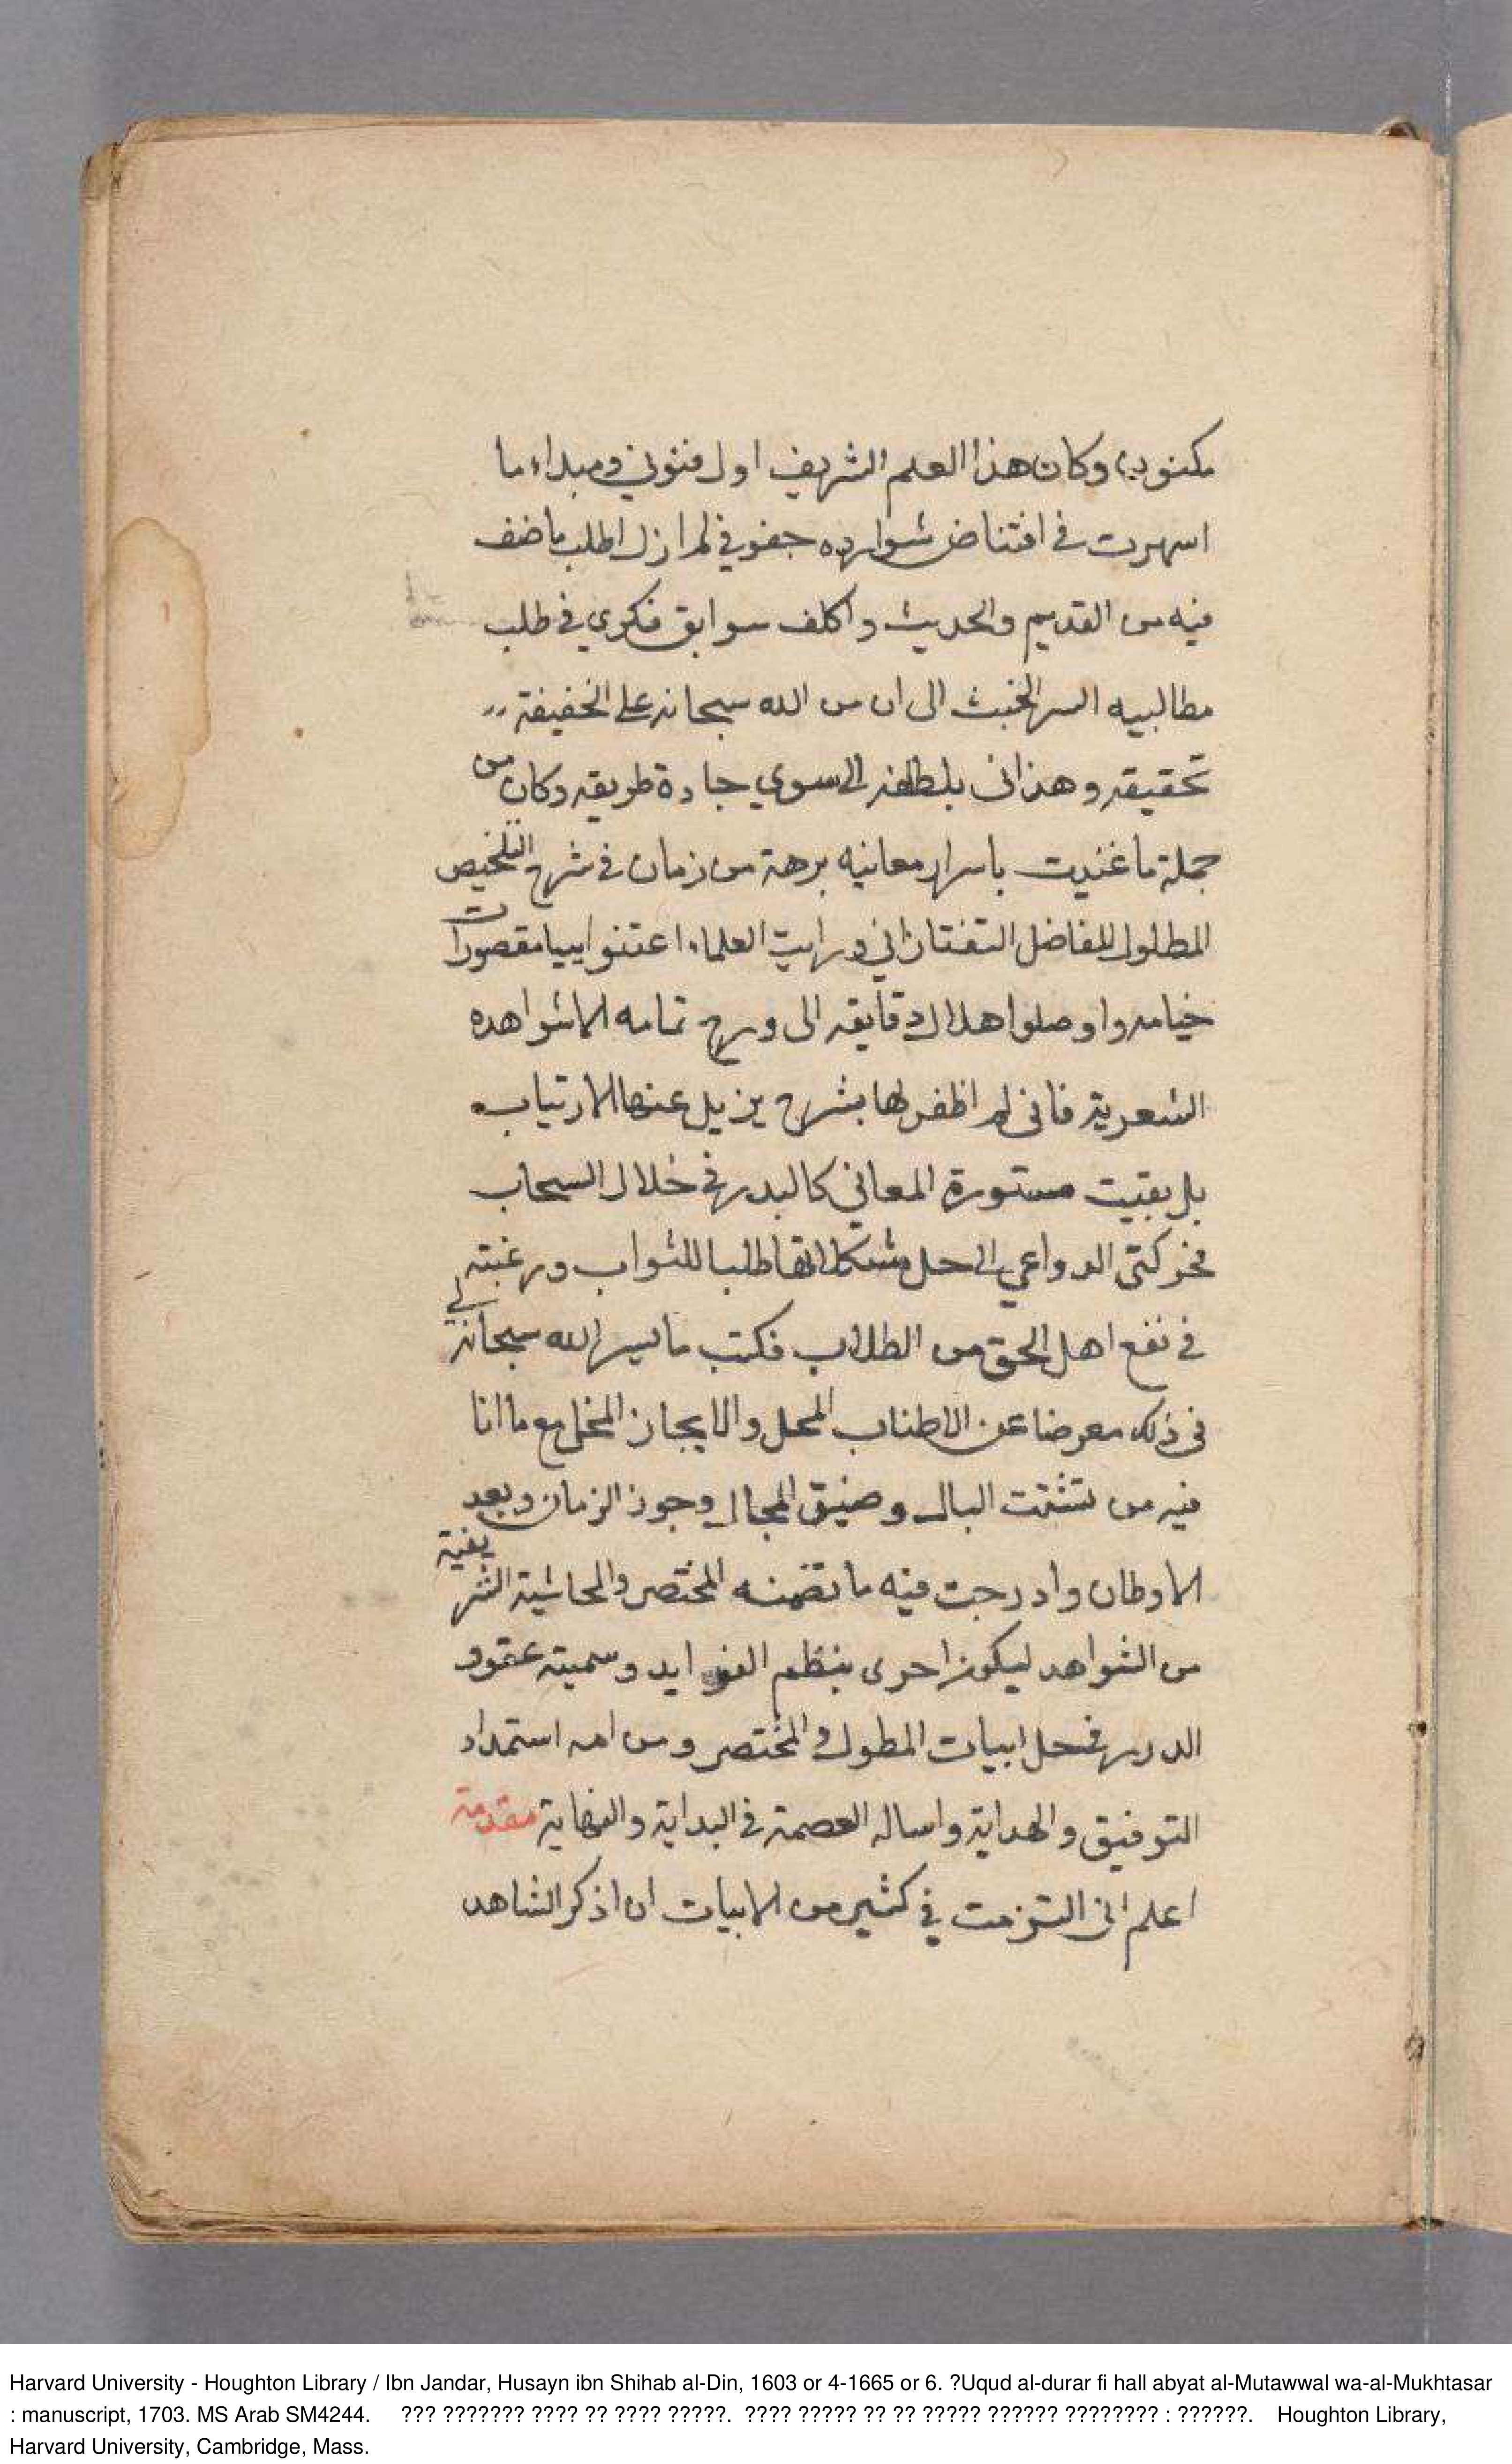 مكنون وكان هذا العلم الشريف اول فنوني ومبداء ما
اسهرت في افتناض شوارده جفوني لم ازل اطلب ماضف
فيه من القديم والحديث واكلف سوابق فكري في طلب
مطالبيه السر الخبث الى ان من الله سبحانه على الخفيفة
تحقيقه وهذاني بلطفه الى سوي جادة طريقه وكان من
جملة ما غنديت باسرار معانيه برهة من زمان في شرح التلخيص
المطلول للفاضل التفتازاني ورايت العلماء اعتنوا ببيا مقصورات
خيامه واوصلوا هلال دقايقه الى ورج تمامه الا شواهده
الشعرية فاني لم اظفر لها بشرح يزيل عنها الارتياب
بل بقيت مستورة المعاني كالبدر في خلال السحاب
فخركتني الدواعي الى حل مشكلاتها طلبا للثواب ورغبته
في نفع اهل الحق من الطلاب فكتب ما يسر الله سبحانه لي
في ذلك معرضا عن الاطناب الممحل والايجاز المخل مع ما انا
فيه من تشتت البال وضيق المجال وجوز الزمان وبعد
الاوطان وادرجت فيه ما تضمنه المختصر والحاشية الشريفية
من الشواهد ليكون احرى بنظم الفوايد وسميته عقود
الدرر في حل ابيات المطول والمختصر ومن امه استمداد
التوفيق والهداية واساله العصمة في البداية والنهاية مقدمة
اعلم اني التزمت في كثير من الابيات ان اذكر الشاهد
Harvard University - Houghton Library / Ibn Jandar, Husayn ibn Shihab al-Din, 1603 or 4-1665 or 6. ?Uqud al-durar fi hall abyat al-Mutawwal wa-al-Mukhtasar
: manuscript, 1703. MS Arab SM4244. ??? ??????? ???? ?? ???? ?????. ???? ????? ?? ?? ????? ?????? ???????? : ??????. Houghton Library,
Harvard University, Cambridge, Mass.